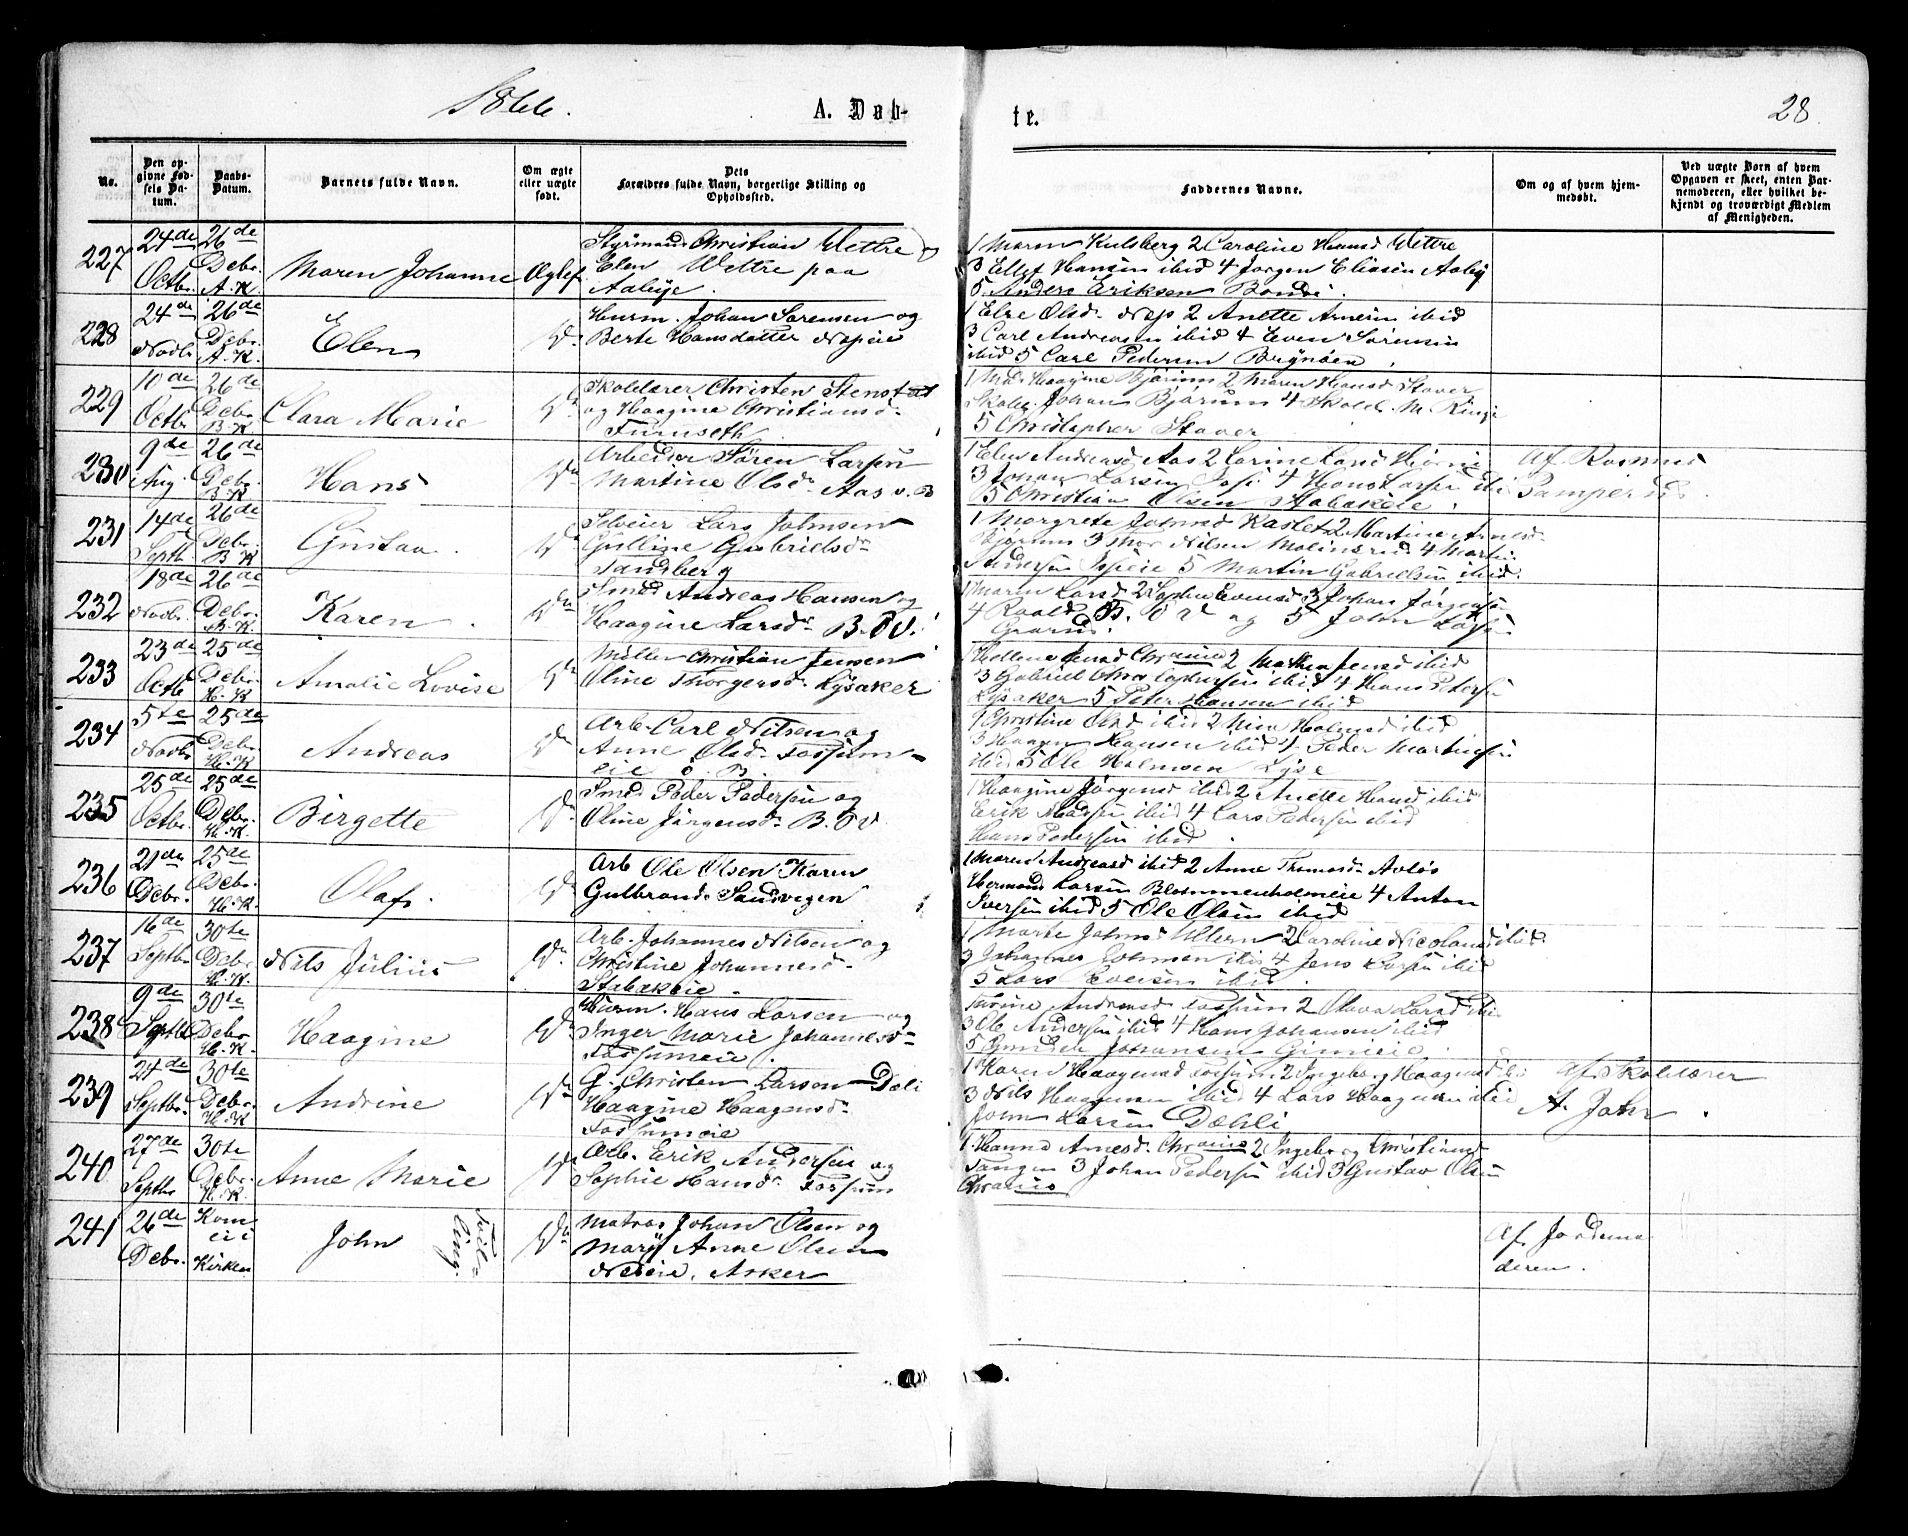 1866.
A. Døb-
te.
28
No.
Den op-
givne Fød-
sels Da-
tum.
Daabs-
Datum.
Barnets fulde Navn.
Om ægte
eller uægte
født.
Dets
Forældres fulde Navn, borgerlige Stilling og
Opholdssted.
Faddernes Navne.
Om og af hvem hjem-
medøbt.
Ved uægte Børn af hvem
Opgaven er skeet, enten Bar-
nemoderen, eller hvilket be-
kjendt og troværdigt Medlem
af Menigheden.
227
24de
Octbr.
26de
Debr.
A. K
Maren Johanne
Ægtef
Styrmand Christian Wettre og
Elen Wettre paa
1 Maren Kulsberg 2 Caroline Hansd Wettre
3 Ellef Hansen ibid 4 Jørgen Eliasen Aaby
5 Anders Eriksen Bondi.
228
24de
Novbr.
26de
Debr.
A. K.
Elen
Do
Husm. Johan Sørensen og
Berte Hansdatter Næseie
1 Else Olsdr Næs 2 Anette Arnesen ibid
3 Carl Andreasen ibid 4 Even Sørensen
ibid 5 Carl Pedersen Brynøen.
229
10de
Octbr.
26de
Debr.
B. K
Clara Marie
Do
Skolelærer Christen Stenstad
og Haagine Christiansdr
Furuseth
Bjørum 2 Maren Hansd Staver
Johan Bjørum 4 Skolel. M. Ringi
5 Christopher Staver
230
9de
Aug.
26de
Debr.
B. K
Hans
Do
Arbeider Søren Larsen
Martine Olsdr Aas v. B
1 Elen Andreasd Aas 2 Larine Larsd
3 Johan Larsen 4 Hans Larsen ibi
5 Christian Olsen Stabækeie.
Af Rasmus
231
14de
Septb.
26de
Debr.
B K
Gustav.
Do
Selveier Lars Johnsen
Gulline Gabrielsdr
Sandberg
1 Margrete Johnsd 2 Martine Arnesd.
Bjørum 3 Thor Nilsen 4 Martin
Andersen 5 Martin Gabrielsen ibid.
232
18de
Novbr.
26de
Debr.
B. K.
Karen.
Do
Smed Andreas Hansen og
Haagine Larsdr B. V.
1 Maren Larsd 2 Sophie Evensd 3 Johan Jørgensen
4 Roald B. V og 5 John
233
23de
Octb
25de
Debr.
H. K
Amalie Lovise
Do
Møller Christian Jensen
Oline Thorgersdr Lysaker
1 Hellene Jensd Chrania 2 Jensd ibid
3 Gabriel ibid 4 Hans Pedersen
Lysaker 5 Peter Hansen ibid
234
5te
Novbr.
25de
Debr.
H. K
Andreas
Do
Arb. Carl Nilsen og
Anne Olsd. Fossum-
eie Ø. B.
1 Christine Olsd ibid 2 Mina Holmsd ibid
3 Haagen Hansen ibid 4 Peder Martinsen
ibid 5 Ole Holmsen Lysa
235
25de
Octbr.
25de
Debr.
H. K.
Birgette
Do
Smed Peder Pedersen og
Oline Jørgensdr B. V
1 Haagine Jørgensd ibid 2 Anette Hansd ibid
Erik Madsen ibid 4 Lars Pedersen ibid
Hans Pedersen ibid.
236
21de
Debr.
25de
Debr.
H. K.
Olaf.
Do
Arb Ole Olsen Karen
Gulbrands Sandvigen
1 Maren Andreasd ibid 2 Anne Thomasdr Avløs
Hermand Larsen Blommenholmeie 4 Anton
Iversen ibid 5 Ole Olsen ibid
237
16de
Septbr
30te
Debr.
H. K.
Nils Julius
Do
Arb. Johannes Nilsen og
Christine Johannesdr
Stabækeie.
1 Marte Johnsd Ullern 2 Caroline Nicolaisd ibid.
3 Johannes ibid 4 Jens Larsen ibid
5 Lars Evensen ibid.
238
9de
Septb
30te
Debr
H. K.
Haagine
Do
Husm. Hans Larsen og
Inger Marie Johannesd-
Fossumeie.
Andreasd Fossum 2 Olava Larsd ibi
3 Ole Andersen ibid 4 Hans Johansen ibid
5 Johansen Gimleie.
239
24de
Septbr.
30te
Debr.
H. K
Andrine
Do
G. Christen Larsen Dæli
Haagine Haagensdr
Fossumeie
1 Karen Haagensd Fossum 2 Ingeborg Haagensd ibi
3 Nils Haagensen ibid 4 Lars Haagensen ibid
John Larsen Dæhli
Af Skolelærer
A. Johr
240
27de
Septbr
30te
Debr.
H. K
Anne Marie
Do
Arb. Erik Andersen og
Sophie Hansdr Fossum
1. Hanna Arnesdr Chrania 2 Ingeborg Christiansd
Tangen 3 Johan Pedersen ibid 3 Gustav Olsen
Chrania
241
26de
Debr.
Kom
ei i
Kirken
John
Tvil-
ling.
Do
Matros Johan Olsen og
Mary Anne Olsen
Neseie. Asker
Af Jordemo
deren.